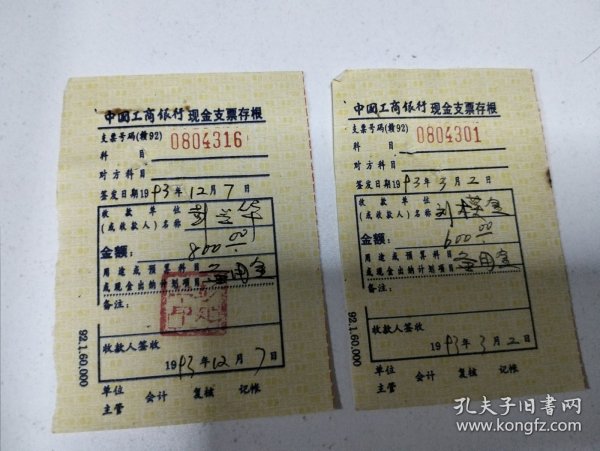 中国工商银行 现金支票存根
支票号码(赣92) 0804316
科 目
对方科目
签发日期1993年12月7日
收款单位
(或收款人)名称
金额: 800.00
用途或预算科目 备用金
或现金出纳计划项目
备注:
收款人签收
1993年12月7日
单位 会计 复核 记帐
主管
92.1.60,000
中国工商银行 现金支票存根
支票号码(赣92) 0804301
科 目
对方科目
签发日期1993年3月2日
收款单位
(或收款人)名称 刘
金额: 600.00
用途或预算科目 备用金
或现金出纳计划项目
备注:
收款人签收
1993年3月2日
单位 会计 复核 记帐
主管
92.1.60,000
孔夫子旧书网
www.kongfz.com